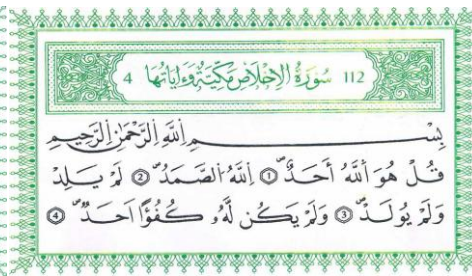 112 سُورَةُ الإِخْلَاصِ مَكِّيَّةٌ وَءَايَاتُهَا 4
بِسْمِ اِللَّهِ اِلرَّحْمَٰنِ اِلرَّحِيمِ
قُلْ هُوَ اَ۬للَّهُ أَحَدٌ ① اِ۬للَّهُ اُ۬لصَّمَدُ ② لَمْ يَلِدْ
وَلَمْ يُولَدْ ③ وَلَمْ يَكُن لَّهُۥ كُفُؤًا اَحَدٌ ④